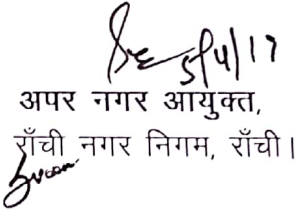 5/4/17
अपर नगर आयुक्त,
राँची नगर निगम, राँची।